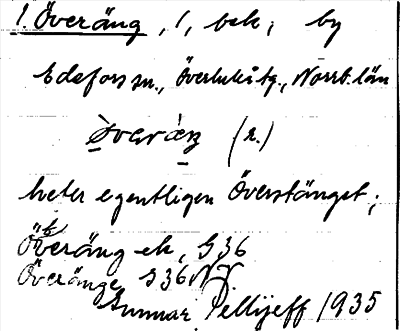 1. Överäng, 1, bek; by
Edefors sn., Överluleå tg., Norrb. län
(2.)
heter egentligen Överstänget;
Överäng ek, G36
Överänge S36
Gunnar Pellijeff 1935